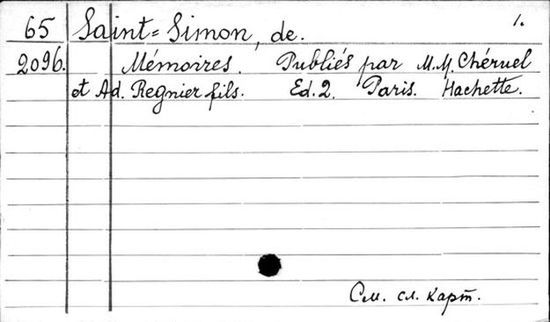 65 Saint=Simon, de. 1.
2096. Mémoires. Publiés par M.M. Chéruel
et Ad. Regnier fils. Ed. 2. Paris. Hachette.
См. сл. карт.